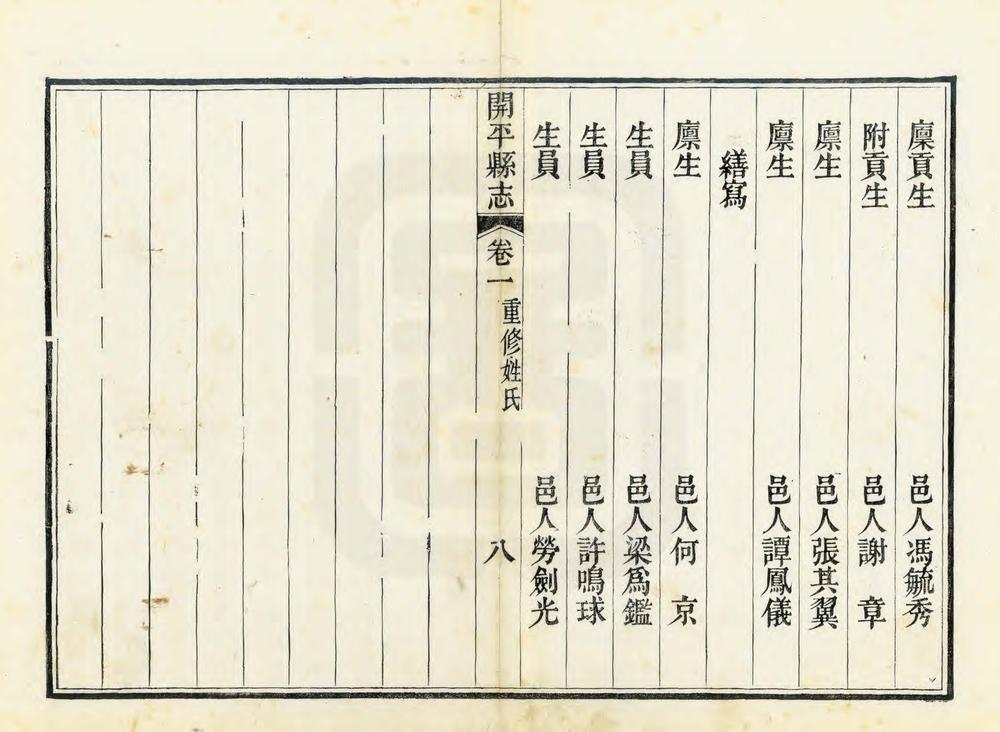 廩貢生 邑人馮毓秀
附貢生 邑人謝 章
廩生 邑人張其翼
廩生 邑人譚鳳儀
繕寫
廩生 邑人何 京
生員 邑人梁爲鑑
生員 邑人許鳴球
生員 邑人勞劍光
開平縣志 卷一 重修姓氏 八